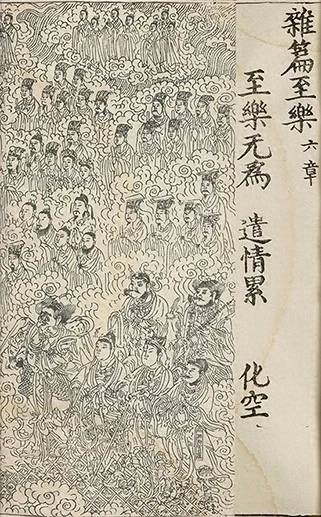 雜篇至樂 六章
至樂无為 遣情累 化空